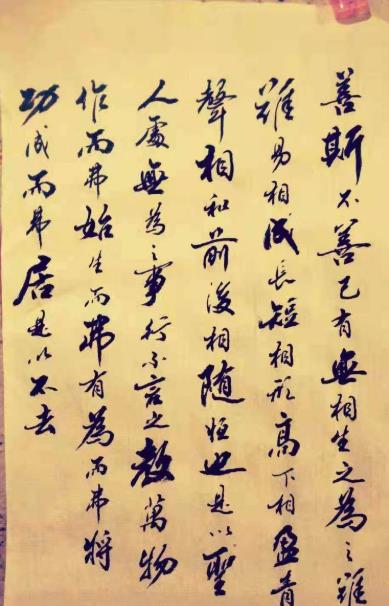 善斯不善已有無相生之為之難
難易相成長短相形高下相盈音
聲相和前後相随恒也是以聖
人處無為之事行不言之教萬物
作而弗始生而弗有為而弗將
功成而弗居是以不去